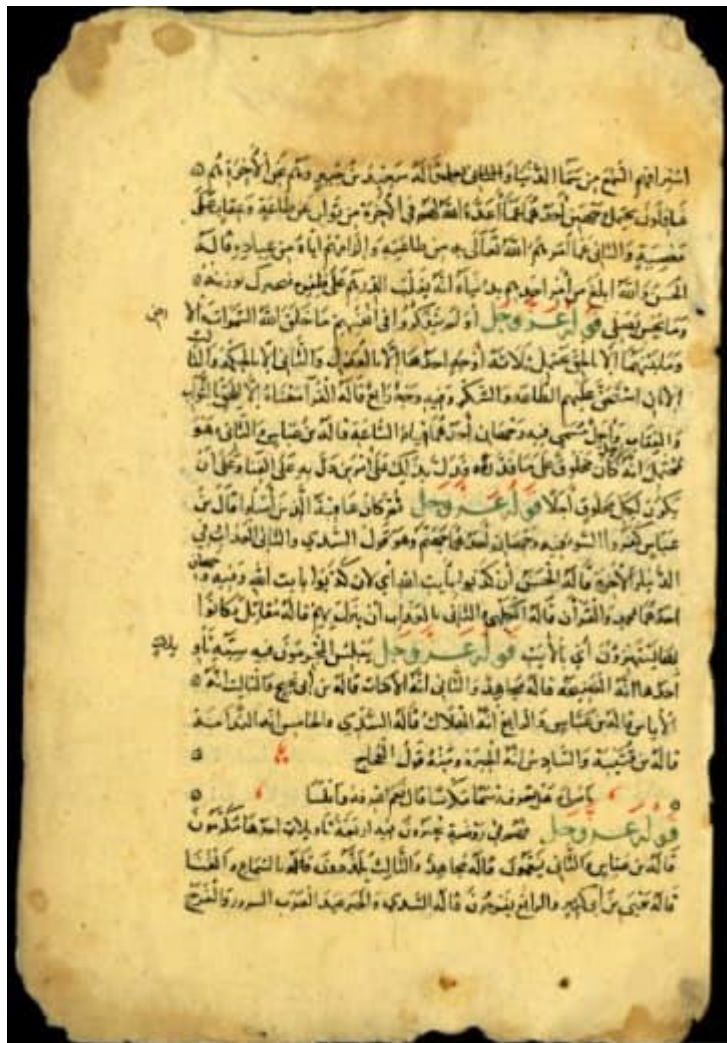 استراقهم السمع من سما الدنيا والثاني قاله سعيد بن جبير وهم عن الآخرة هم
غافلون يحتمل وجهين أحدهما عما أعده الله لهم في الآخرة من ثواب عن طاعته وعقاب على
معصيته والثاني عما أمرهم الله تعالى به من طاعته وإلزامهم إياه من عباده قال
الحسن والله أبلغ من أحدهم بدنياه أنه يقلب الدرهم على ظفره فيخبرك بوزنه
وما يحسن يصلي قوله عز وجل أو لم يتفكروا في أنفسهم ما خلق الله السموات الا
وما بينهما إلا بالحق يحتمل ثلاثة أوجه احدها إلا بالعدل والثاني إلا بالحكمة والثا لث
إلا بان استحق عليهم الطاعة والشكر وفيه وجه رابع قاله الفرا معناه إلا للحق الثواب
والعقاب وأجل مسمى فيه وجهان أحدهما قيام الساعة قاله بن عباس والثاني هو
محتمل انه كان مخلوق على ما قدره فدل بذلك على أمرين دل به على الفناء وعلى أن
يكون لكل مخلوق أجلا قوله عز وجل ثم كان عاقبة الذين أساوا قال بن
عباس كفروا السوءى فيه وجهان أحدهما جهنم وهو قول السدي والثاني العذاب في
الدنيا والآخرة قاله الحسن أن كذبوا بآيت الله أي لان كذبوا بايت الله وفيه وجهان
احدهما محمد والقرآن قاله الكلبي الثاني بالعذاب أن ينزل بهم قاله مقاتل وكانوا
بها يستهزون أي بالأيت قوله عز وجل يبلس المجرمون فيه ستة تأو يلات
أحدها انه الفضيحة قاله مجاهد والثاني أنه الاكتئاب قاله بن أبي نجيح والثالث انه
الأياس قاله بن عباس والرابع انه الهلاك قاله السدي والخامس انه الندامة
قاله بن قتيبة والسادس انه الحيرة ومنه قول العجاج
يا صاح هل تعرف رسما مكرسا قال نعم اعرفه وأبلسا
قوله عز وجل فهم في روضة يحبرون فيه اربعة تأويلات احدها يكرمون
قاله بن عباس والثاني ينعمون قاله مجاهد والثالث يتلذذون قاله بالسماع والغنا
قاله يحيى بن أبي كثير والرابع يفرحون قاله السدي والحبر عند العرب السرور والفرح